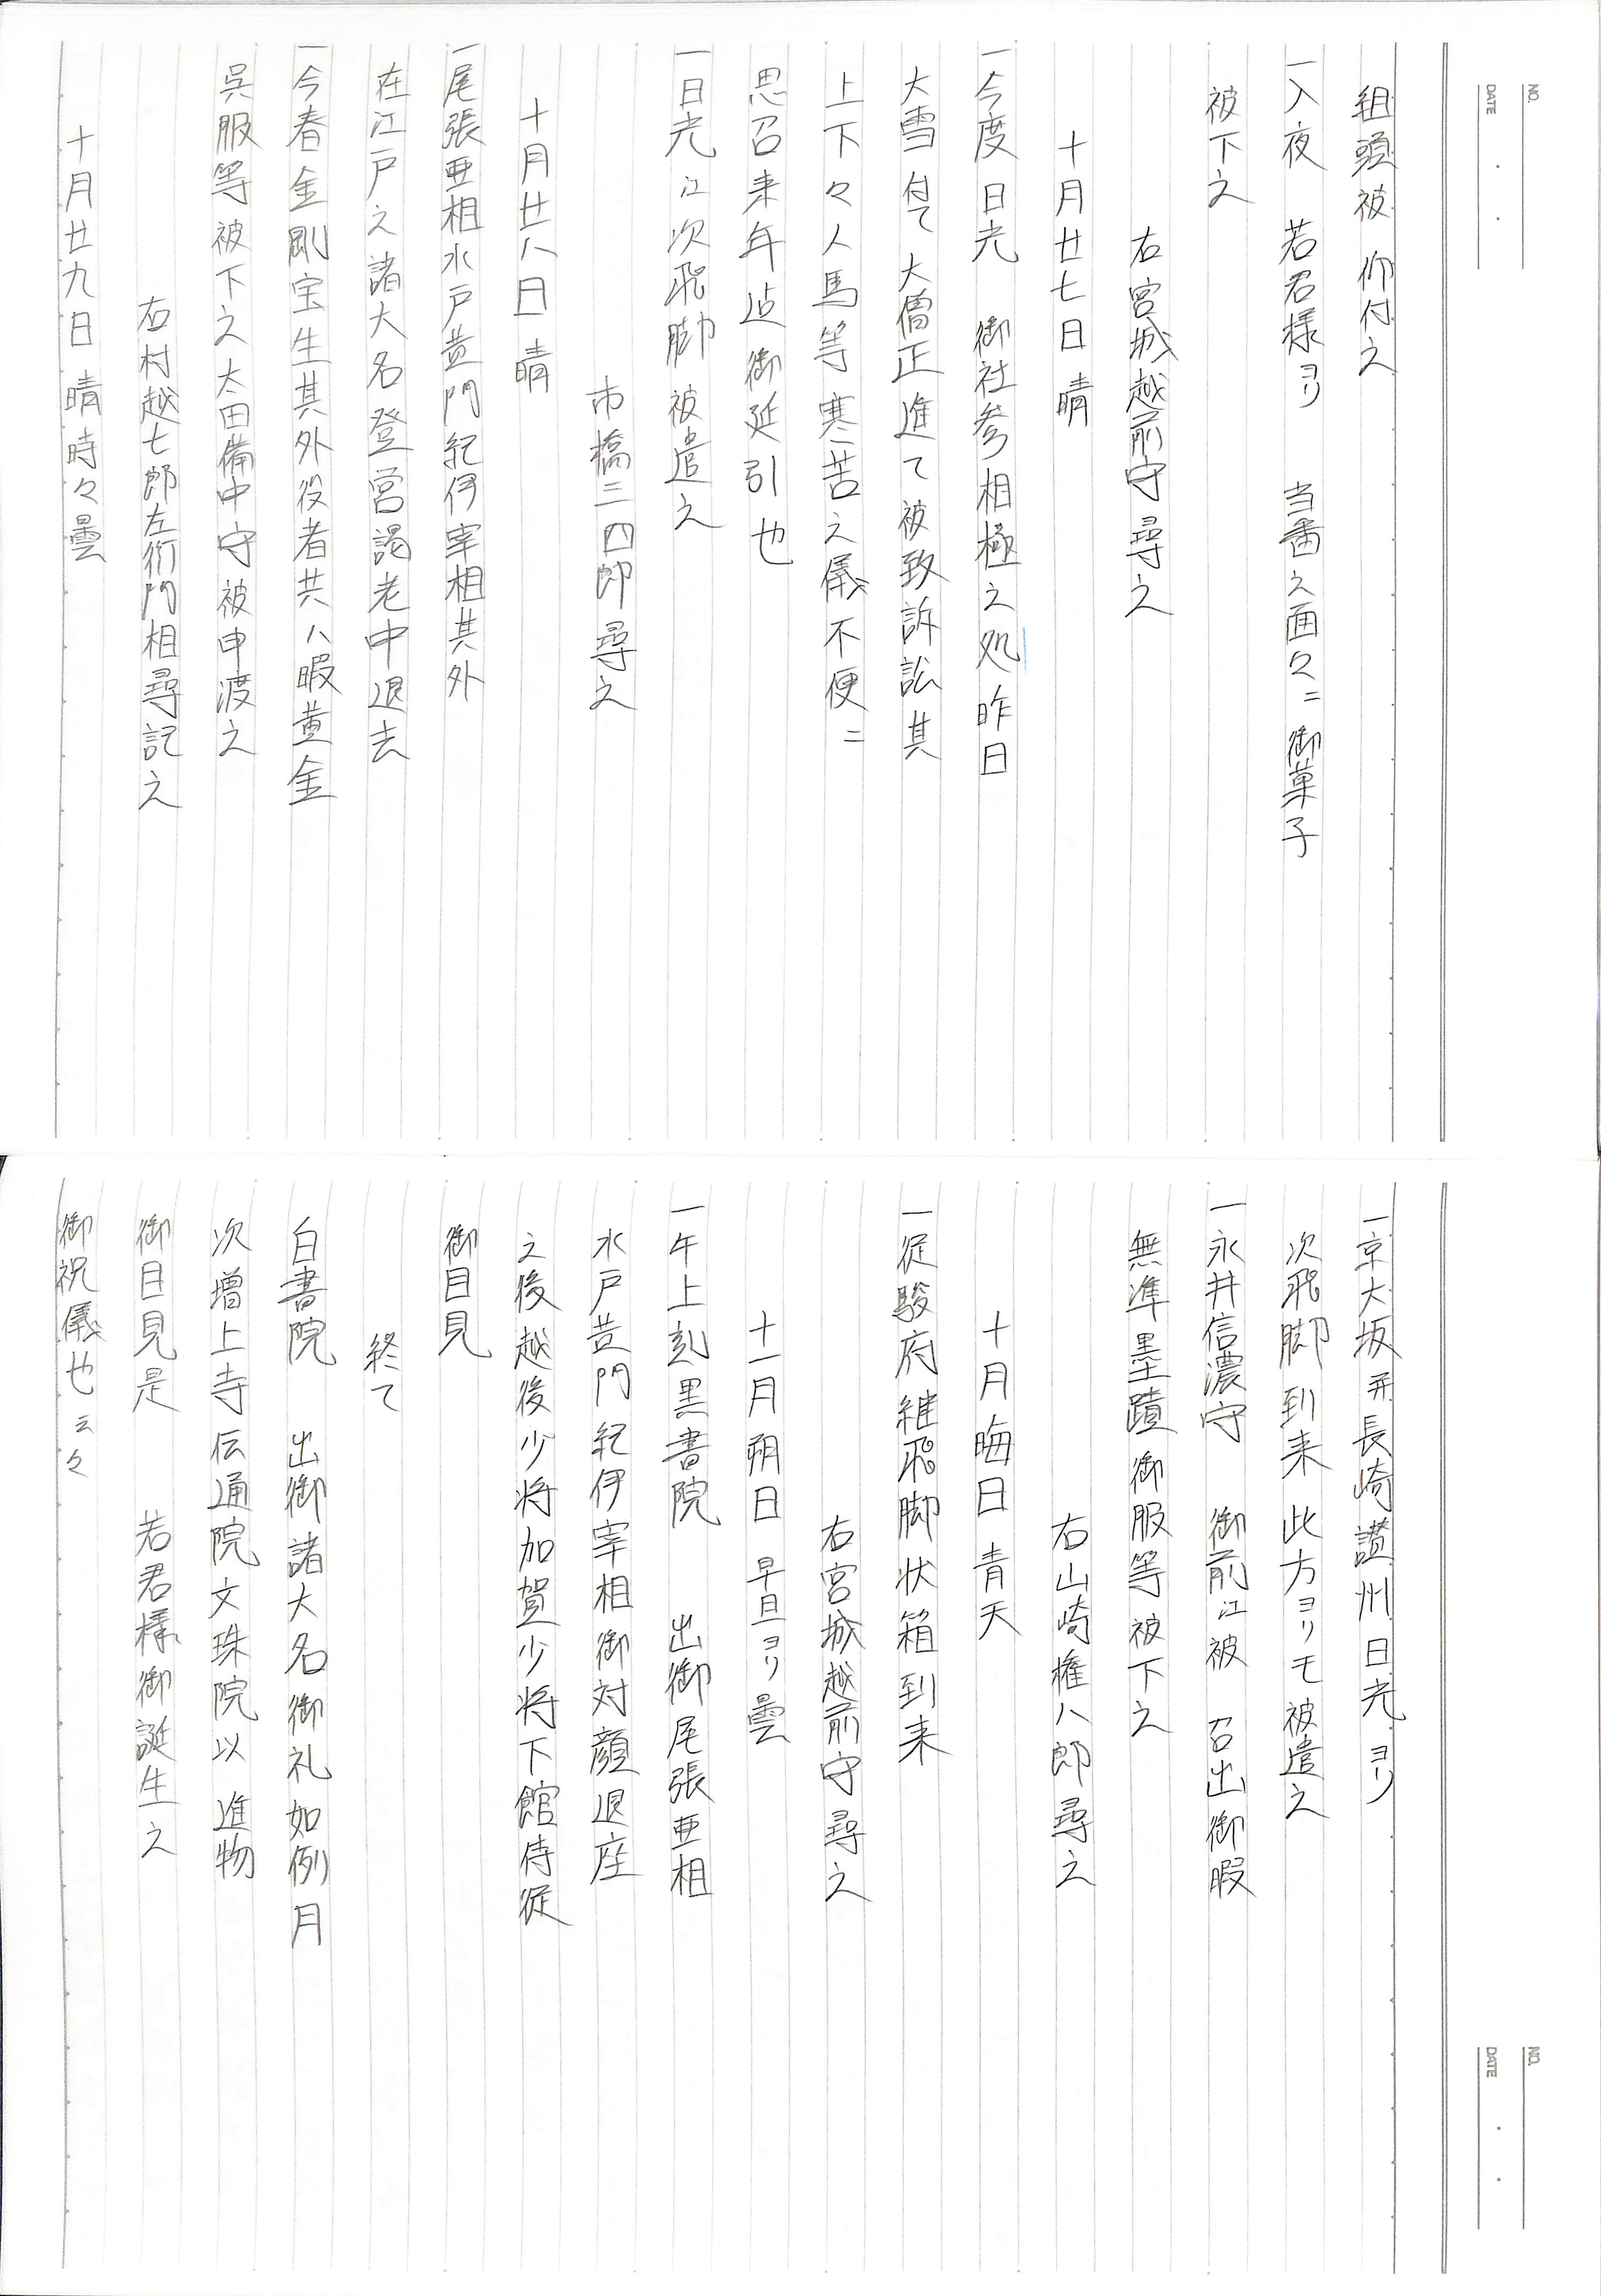 NO.
DATE
組頭被 仰付之
一入夜 若君様ヨリ 当番之面々ニ御菓子
被下之
右宮城越前守尋之
十月廿七日 晴
一今度日光 御社参相極之処昨日
大雪付て大僧正達て被致訴訟其
上下々人馬等寒苦之儀不便ニ
思召来年迄御延引也
一日光江次飛脚被遣之
市橋三四郎尋之
十月廿八日 晴
一尾張亜相水戸黄門紀伊宰相其外
在江戸之諸大名登営謁老中退去
一今春金剛宝生其外役者共ハ暇黄金
呉服等被下之太田備中守被申渡之
右村越七郎左衛門相尋記之
十月廿九日 晴時々曇
NO.
DATE
一京大坂并長崎讃州日光ヨリ
次飛脚到来此方ヨリモ被遣之
一永井信濃守 御前江被 召出御暇
無準墨蹟御服等被下之
右山崎権八郎尋之
十月晦日 青天
一従駿府継飛脚状箱到来
右宮城越前守尋之
十一月朔日 早旦ヨリ曇
一午上刻黒書院 出御尾張亜相
水戸黄門紀伊宰相御対顔退座
之後越後少将加賀少将下館侍従
御目見
終て
白書院 出御諸大名御礼如例月
次増上寺伝通院文珠院以進物
御日見是 若君様御誕生之
御祝儀也云々